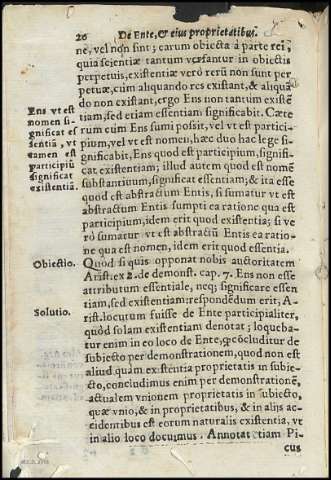 20 De Ente, & eius proprietatibus.
ne, vel non sint; earum obiecta à parte rei;
quia scientiæ tantum versantur in obiectis
perpetuis, existentiæ verò rerū non sunt per
petuæ, cùm aliquando res existant, & aliquā
do non existant, ergo Ens non tantum existē
tiam, sed etiam essentiam significabit. Cæte
rum cùm Ens sumi possit, vel vt est partici-
pium, vel vt est nomen, hæc duo hac lege si-
gnificabit, Ens quod est participium, signifi-
cat existentiam; illud autem quod est nomē
substantiuum, significat essentiam; & ita esse
quod est abstractum Entis, si sumatur vt est
abstractum Entis sumpti ea ratione qua est
participium, idem erit quod existentia; si ve
rò sumatur vt est abstractū Entis ea ratio-
ne qua est nomen, idem erit quod essentia.
Quod si quis opponat nobis auctoritatem
Arist. ex 2. de demonst. cap. 7. Ens non esse
attributum essentiale, neq; significare essen
tiam, sed existentiam: respondēdum erit, A-
rist. locutum fuisse de Ente participialiter,
quòd solam existentiam denotat; loqueba-
tur enim eo loco de Ente, q̃ cōcluditur de
subiecto per demonstrationem, quod non est
aliud quàm existentia proprietatis in subie-
cto, concludimus enim per demonstrationē,
actualem vnionem proprietatis in subiecto,
quæ vnio, & in proprietatibus, & in alijs ac
cidentibus est eorum naturalis existentia, vt
in alio loco docuimus. Annotat etiam Pi-
cus
Ens vt est
nomen si-
gnificat es
sentiā, vt
tamen est
participiū
significat
existentiā.
Obiectio.
Solutio.